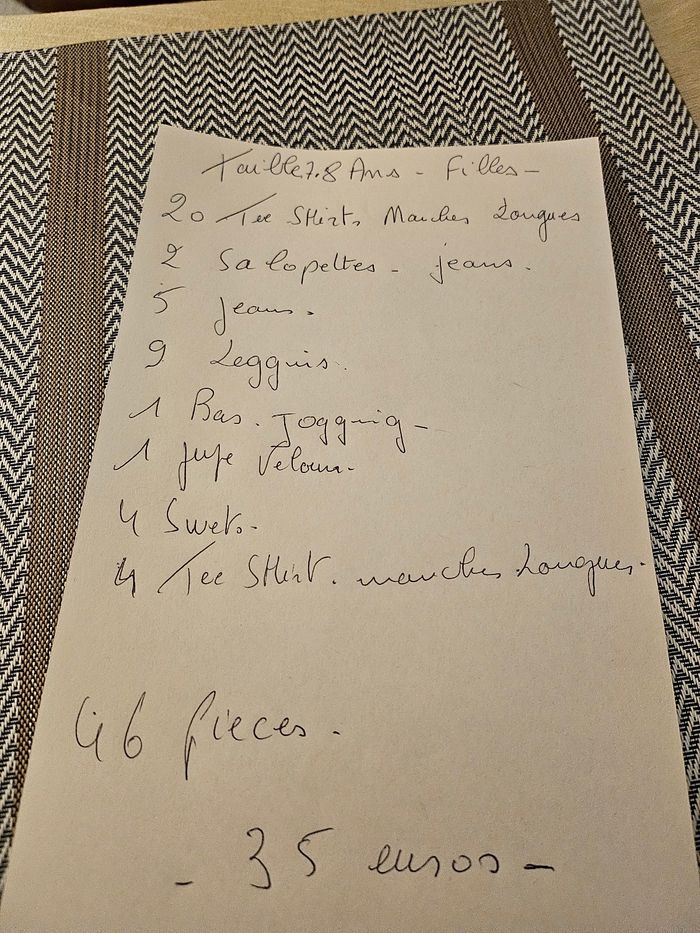 Taille 7.8 Ans - Filles -
20 Tee Shirts Manches Longues
2 Salopettes - jeans.
5 jeans.
9 Leggins.
1 Bas. Jogging -
1 jupe Velours.
4 Swets.
4 Tee Shirt. manches Longues.
46 pieces.
- 35 euros -